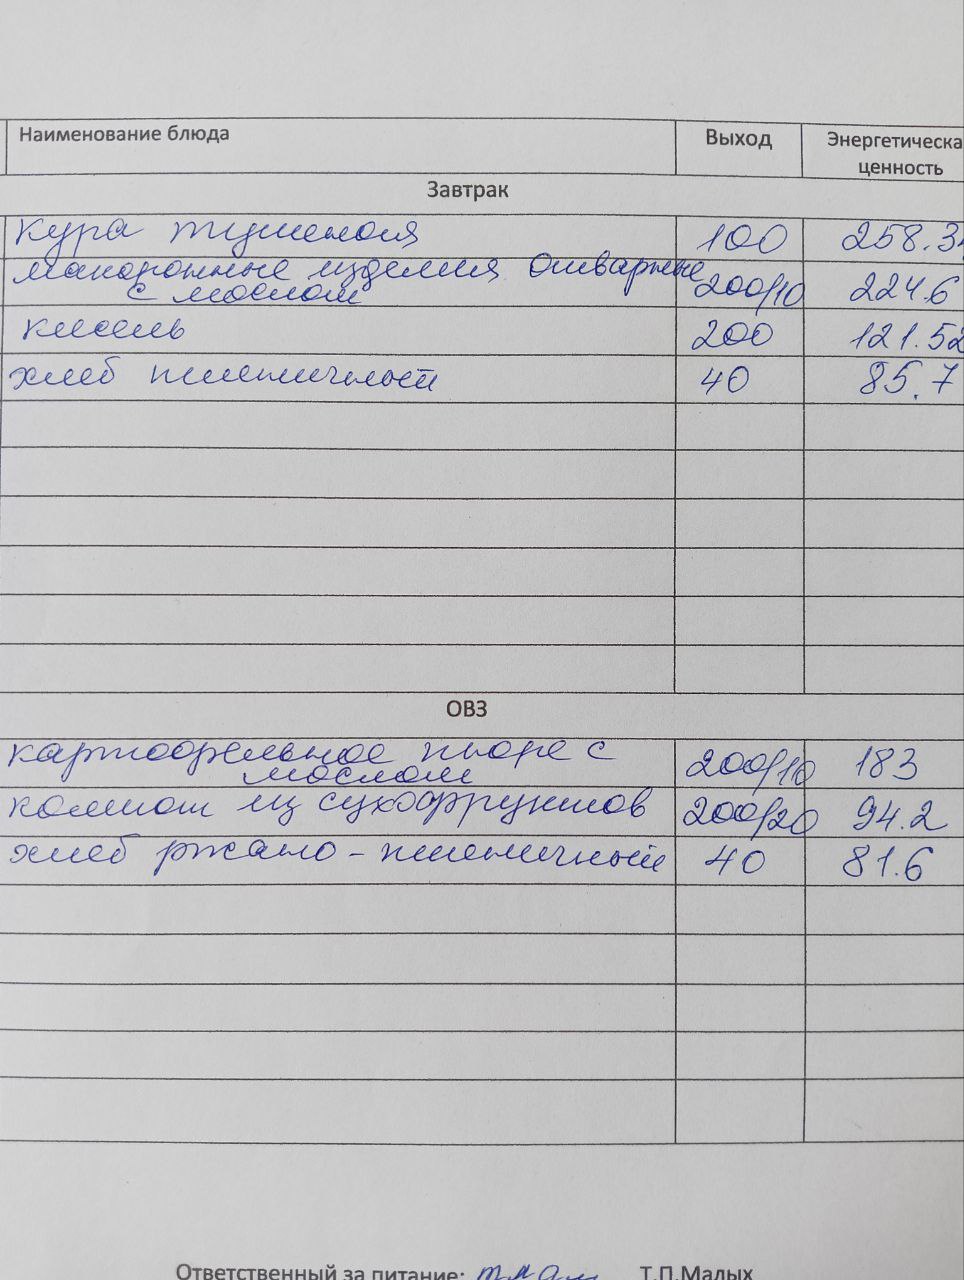 Наименование блюда Выход Энергетическа
ценность
Завтрак
кура тушеная 100 258.3
макаронные изделия отварные
с маслом 200/10 224.6
кисель 200 121.52
хлеб пшеничный 40 85.7
ОВЗ
картофельное пюре с
маслом 200/10 183
компот из сухофруктов 200/20 94.2
хлеб ржано-пшеничный 40 81.6
Ответственный за питание: Т.П.Малых